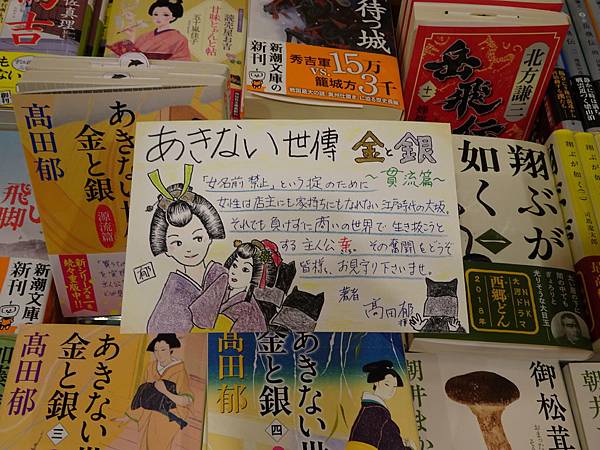 あきない世傳 金と銀
～貫流篇～
「女名前禁止」という掟のために
女性は店主にも家持ちにもなれない江戸時代の大坂。
それでも負けずに商いの世界で生き抜こうと
する主人公幸。その奮闘をどうぞ
皆様、お見守り下さいませ。
著者 髙田郁 拝
郁
髙田郁
あきない世傳
金と銀
源流篇
髙田郁
あきない世傳
金と銀
三
髙田郁
あきない世傳
金と銀
四
読売屋お吉
甘味とぉんと帖
五十嵐佳子
待つ城
新潮文庫の新刊
秀吉軍15万
VS.
龍城方3千
北方謙三
岳飛伝
十
翔ぶが如く
一
大河
NHK
ドラマ
西郷どん
2018年
飛脚
新潮文庫の新刊
御松茸
朝井